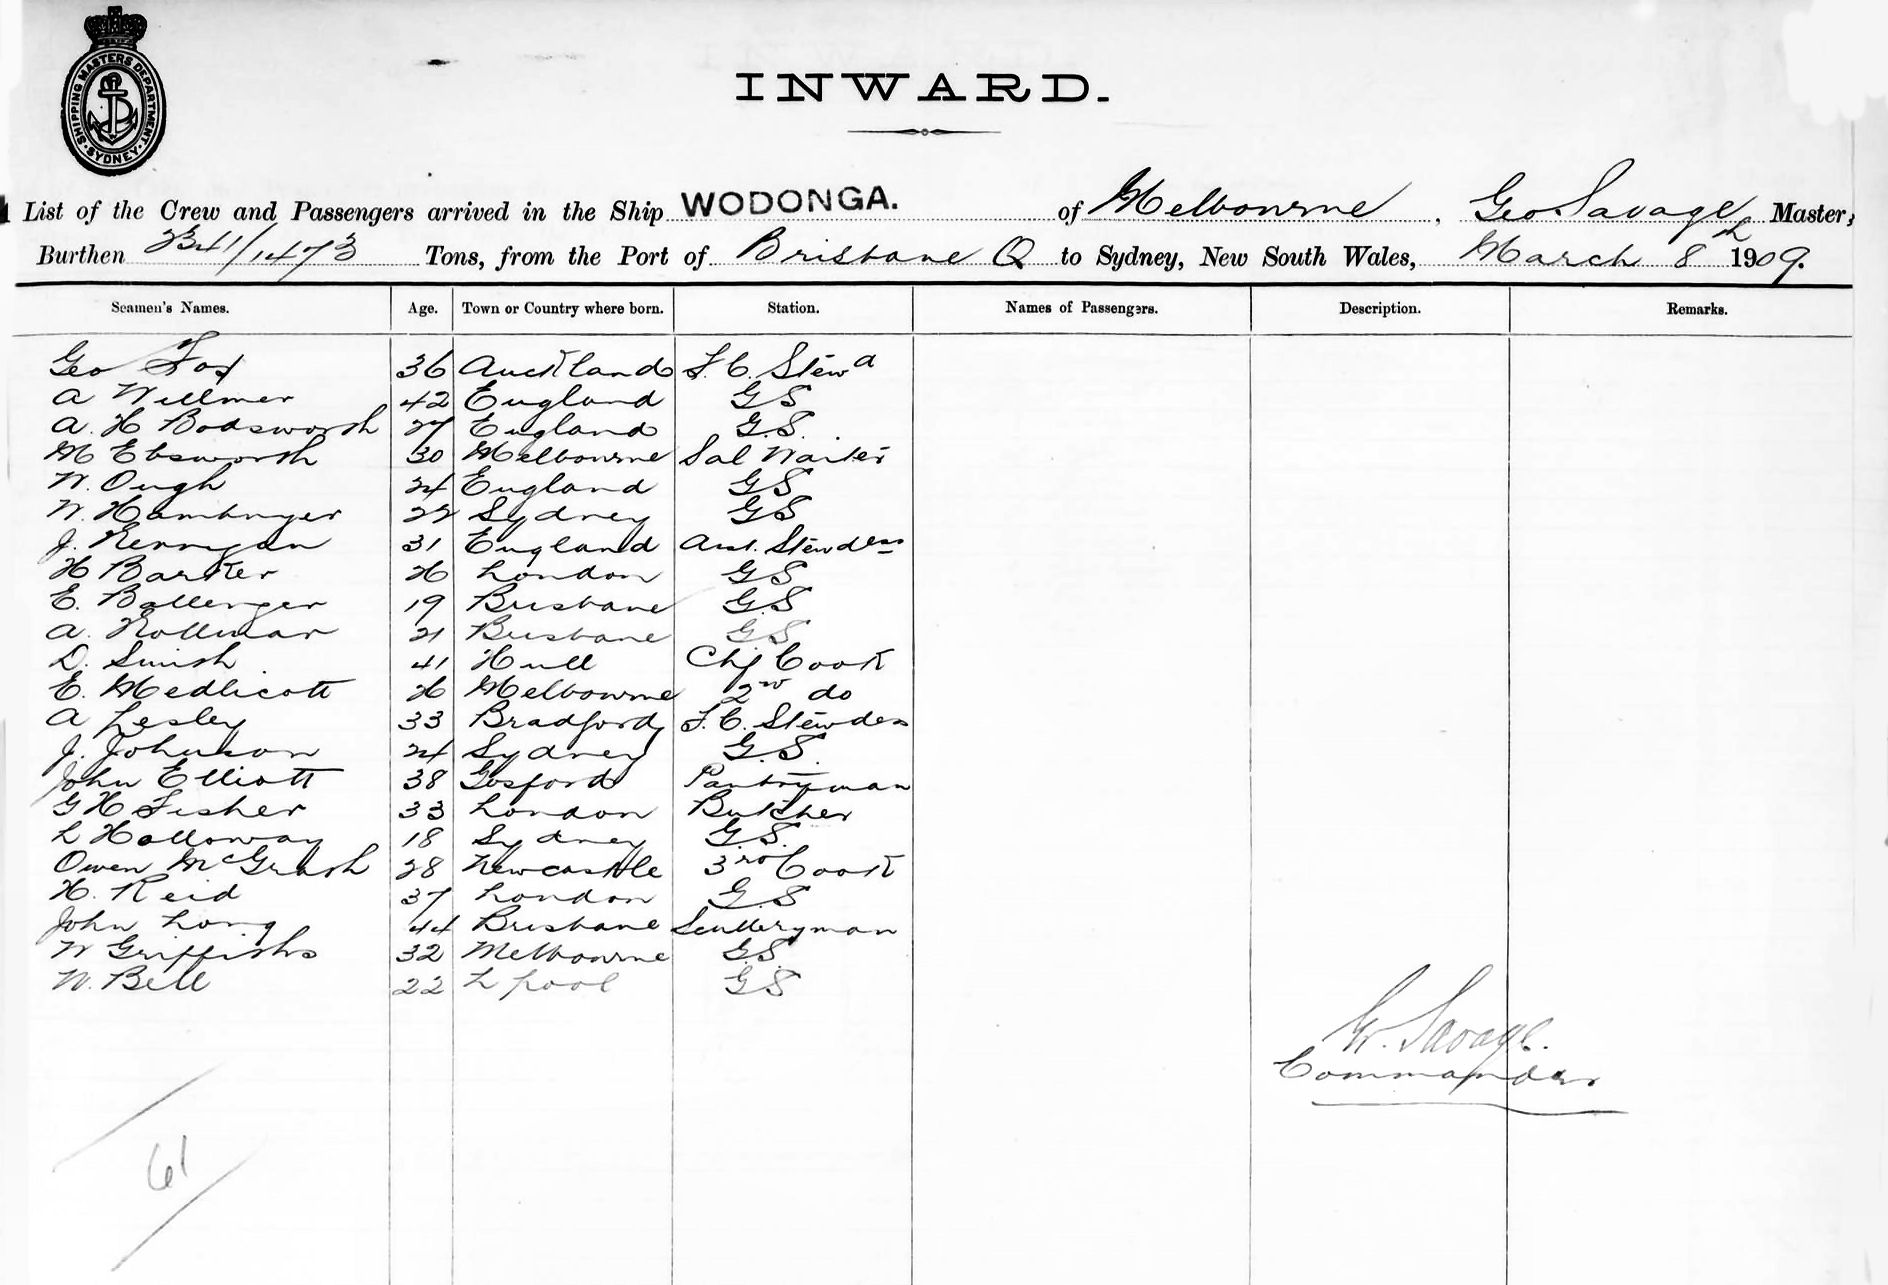 SHIPPING MASTERS DEPARTMENT. SYDNEY
INWARD.
List of the Crew and Passengers arrived in the Ship WODONGA. of Melbourne, Geo Savage Master,
Burthen 2341/1473 Tons, from the Port of Brisbane Q to Sydney, New South Wales, March 8th 1909.
Seamen's Names. Age. Town or Country where born. Station. Names of Passengers. Description. Remarks.
Geo Fox 36 Auckland F.C. Stewd
A Willmer 42 England GS
A. H Bodsworth 27 England G.S.
M Ebsworth 30 Melbourne Sal Waiter
W. Ough 24 England GS
W. Hamburger 22 Sydney GS
J. Kerrigan 31 England Asst. Stewdess
H Barker 26 London GS
E. Ballenger 19 Brisbane G.S
A. 21 Brisbane G.S
D. Smith 41 Hull Chf Cook
E. Medlicott 26 Melbourne 2nd do
A Lesley 33 Bradford F.C. Stewdess
J. Johnson 24 Sydney G.S.
John Elliott 38 Gosford Pantryman
G H Fisher 33 London Butcher
L Holloway 18 Sydney G.S.
Owen McGrath 28 Newcastle 3rd Cook
H. Reid 37 London G.S
John Long 44 Brisbane Sculleryman
W Griffiths 32 Melbourne G.S.
W. Bell 22 L pool GS
G. Savage.
Commander
61